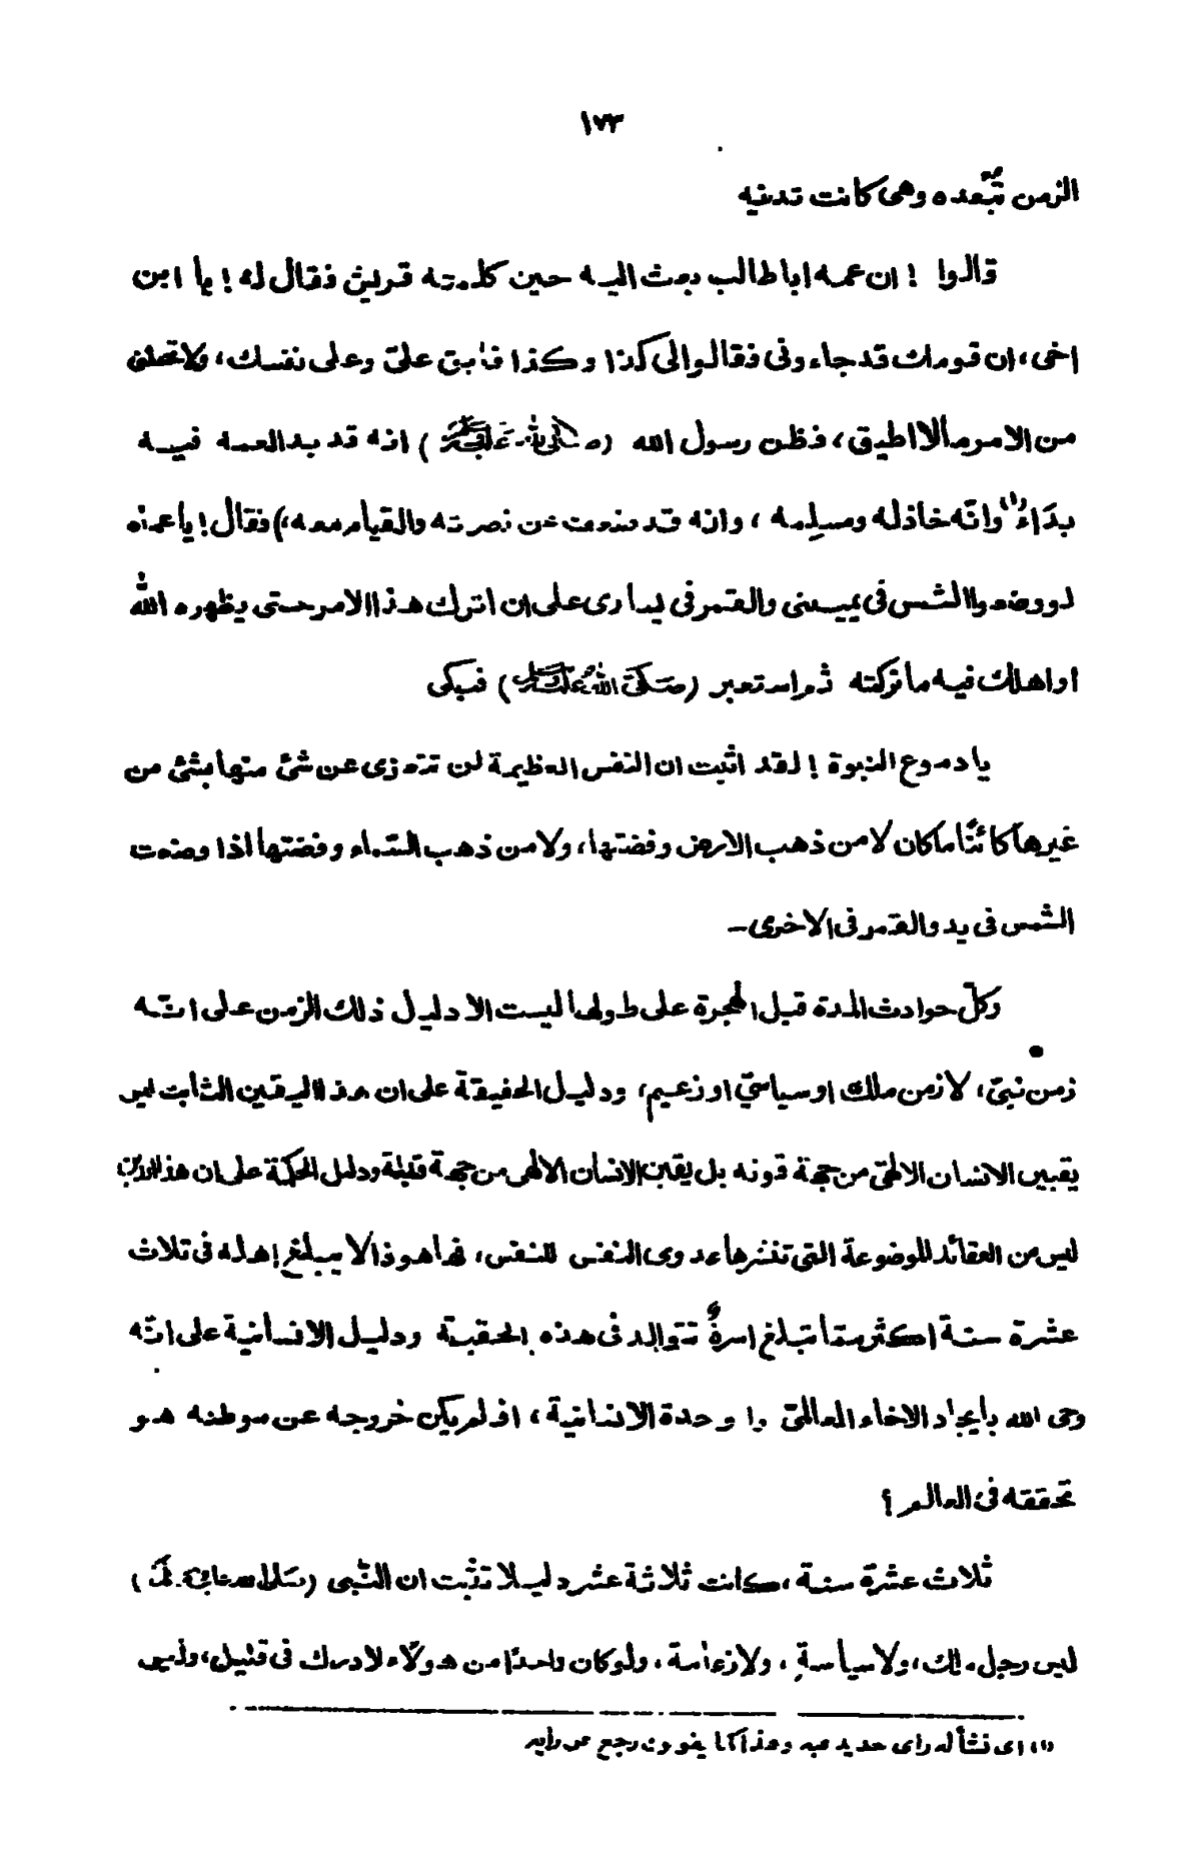 ١٧٣
الزمن تُبّعده وهى كانت تدنيه
قالوا ! ان عمه ابا طالب بعث اليه حين كلمته قريش فقال له ! يا ابن
اخى، ان قومك قد جاء ونى فقالوا لى كذا وكذا فابق علىّ وعلى نفسك، ولا تحملنى
من الامر مالا اطيق، فظن رسول الله (صلى الله عليه وسلم) انه قد بدالعمه فيه
بدَاءٌ(١) وانّه خاذله ومسلِمه ، وانه قد ضعف عن نصرته والقيام معه،) فقال! يا عماه
لو وضعوا الشمس فى يمينى والقمر فى يسارى على ان اترك هذا الامر حتى يظهره الله
او اهلك فيه ما تركته ثم استعبر (صَلّى اللهُ عليه وسلم) فبكى
يا دموع النبوة ! لقد اثبت ان النفس العظيمة لن تتعزى عن شئ منها بشئ من
غيرها كائنًا ما كان لا من ذهب الارض وفضتها، ولا من ذهب السّماء وفضتها اذا وضعت
الشمس فى يد والقمر فى الاخرى–
وكلّ حوادث المدة قبل الهجرة على طولها ليست الا دليل ذلك الزمن على انّه
زمن نبىّ، لا زمن ملك او سياسىّ او زعيم، ودليل الحقيقة على ان هذا اليقين الثابت ليس
يقين الانسان الاجتماعىّ من جهة قوته بل يقين الانسان الالهى من جهة قلبه ودليل الحكمة على ان هذا الدين
ليس من العقائد الموضوعة التى تنشرها عدوى النفس للنفس، فها هو ذا لا يبلغ اهله فى ثلاث
عشرة سنة اكثر مما تبلغ اسرةٌ تتوالد فى هذه الحقبة ودليل الانسانية على انّه
وحى الله بايجاد الاخاء العالمىّ وا وحدة الانسانية، افلم يكن خروجه عن موطنه هو
تحققه فى العالم؟
ثلاث عشرة سنة، كانت ثلاثة عشر دليلا تثبت ان النّبى (صلى الله عليه وسلم)
ليس رجل ملك، ولا سياسةٍ ، ولا زعامة ، ولو كان واحدًا من هولاء لادرك فى قليل، وليس
(١) اى نشأ له راى جديد فيه وهذا كما يقولون رجع عن رايه